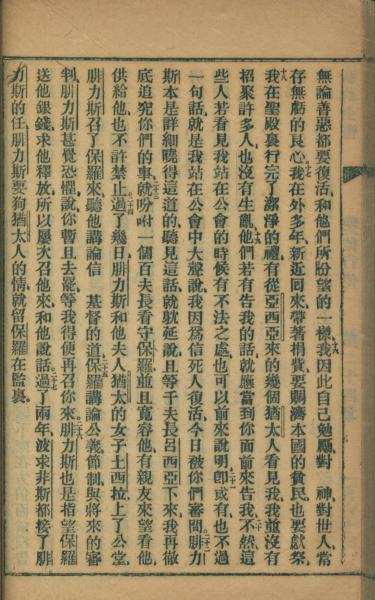 無論善惡都要復活、和他們所盼望的一樣、十六我因此自己勉勵、對　神對世人、常
存無虧的良心、十七我在外多年、新近回來、帶著捐貲、要賙濟本國的貧民、也要獻祭、
十八我在聖殿裏行完了潔淨的禮、有從亞西亞來的幾個猶太人看見我、我並沒有
招聚許多人、也沒有生亂、十九他們若有告我的話、就應當到你面前來告我、二十不然、這
些人若看見我站在公會的時候、有不法之處、也可以前來說明、二十一卽或有、也不過
一句話、就是我站在公會中大聲說、我因爲信死人復活、今日被你們審問、二十二腓力
斯本是詳細曉得這道的、聽見這話、就躭延說、且等千夫長呂西亞下來、我再徹
底追究你們的事、二十三就吩咐一個百夫長、看守保羅、並且寬容他、有親友來望看他、
供給他、也不許禁止、二十四過了幾日、腓力斯和他夫人猶太的女子土西拉、上了公堂、
腓力斯召了保羅來、聽他講論信　基督的道、二十五保羅講論公義、節制、與將來的審
判、腓力斯甚覺恐懼、說、你暫且去罷、等我得便再召你來、二十六腓力斯也是指望保羅
送他銀錢、求他釋放、所以屢次召他來、和他說話、二十七過了兩年、波求非斯都接了腓
力斯的任、腓力斯要狥猶太人的情、就留保羅在監裏。